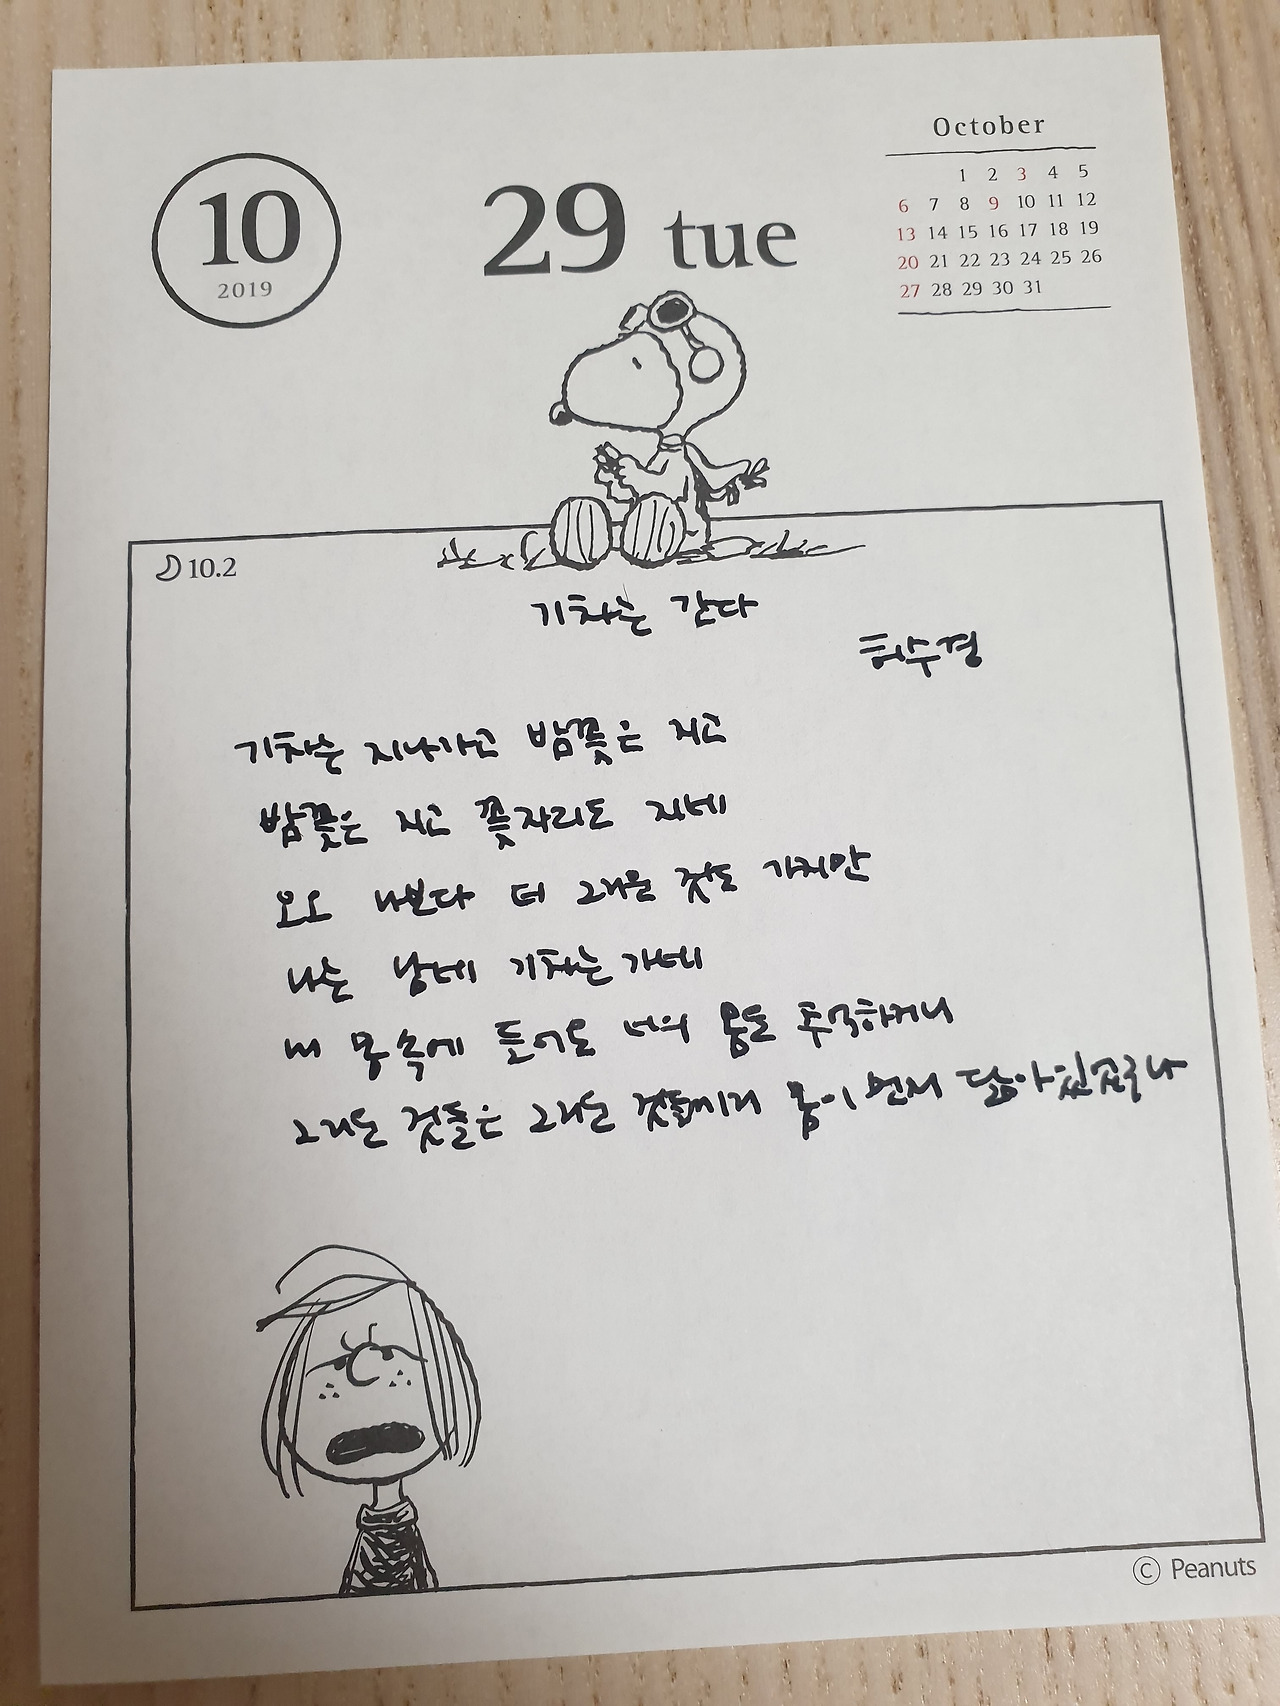 10
2019
29 tue
October
1 2 3 4 5
6 7 8 9 10 11 12
13 14 15 16 17 18 19
20 21 22 23 24 25 26
27 28 29 30 31
10.2
기차는 간다
허수경
기차는 지나가고 밤꽃은 지고
밤꽃은 지고 꽃자리도 지네
오오 나보다 더 그리운 것도 가지만
나는 남네 기차는 가네
내 몸 속에 들어온 너의 몸을 추억하거니
그리운 것들은 그리운 것들끼리 몸이 먼저 닮아있었구나
© Peanuts